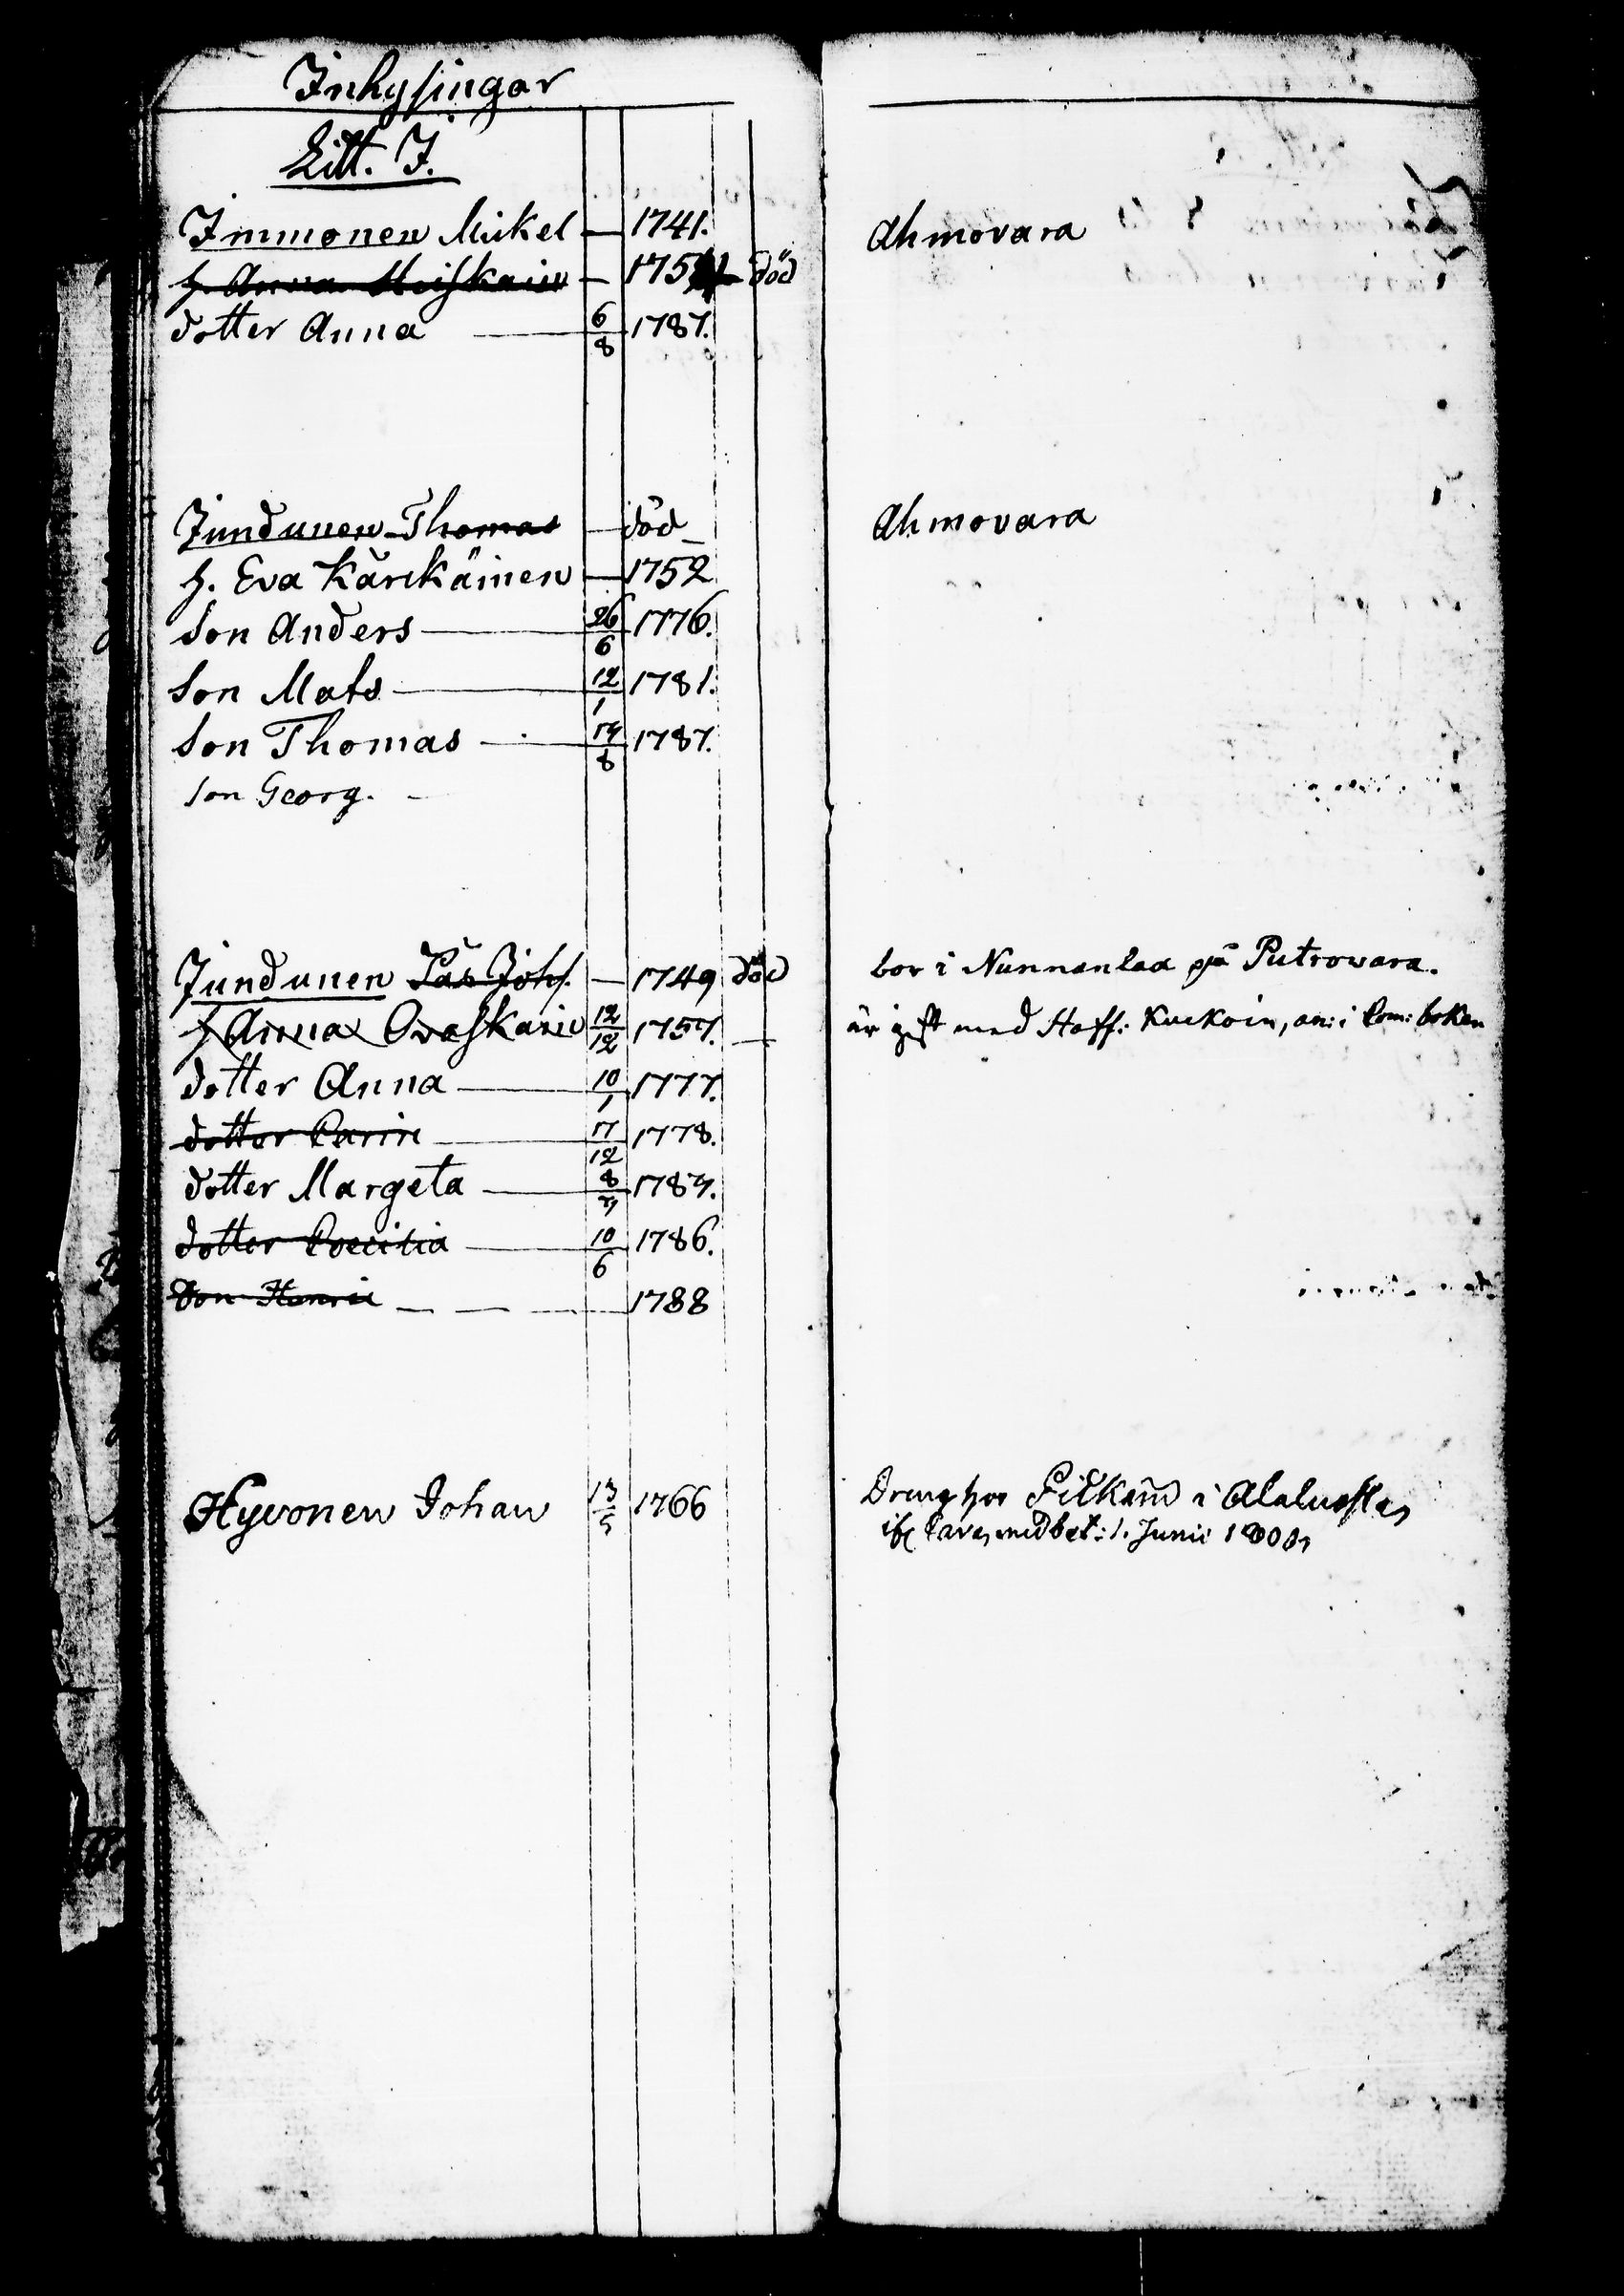 Inhysingar
Litt. I.
Immonen Mickel — 1741. Ahmovara
h. Anna — 175 död
dotter Anna — 6/8 1787.
Jundunen Thomas — död — Ahmovara
h. Eva Kärckäinen — 1752
Son Anders — 26/6 1776.
Son Mats — 12/1 1781.
Son Thomas — 8 1787.
son Georg. —
Jundunen Joh. — 1749 död bor i Nunnanlaa på Putrowara.
h Anna Ovaskain 12/12 1757. — är gift med Staff: Kuckoin, an: i Com: boken
dotter Anna — 10/1 1777.
dotter Carin — 17/12 1778.
dotter Margeta — 8
dotter Coecilia — 10/6 1786.
Son Henric — — — 1788
Hyvonen Johan 13/5 1766 Dreng hos i
med bet: 1. Junii